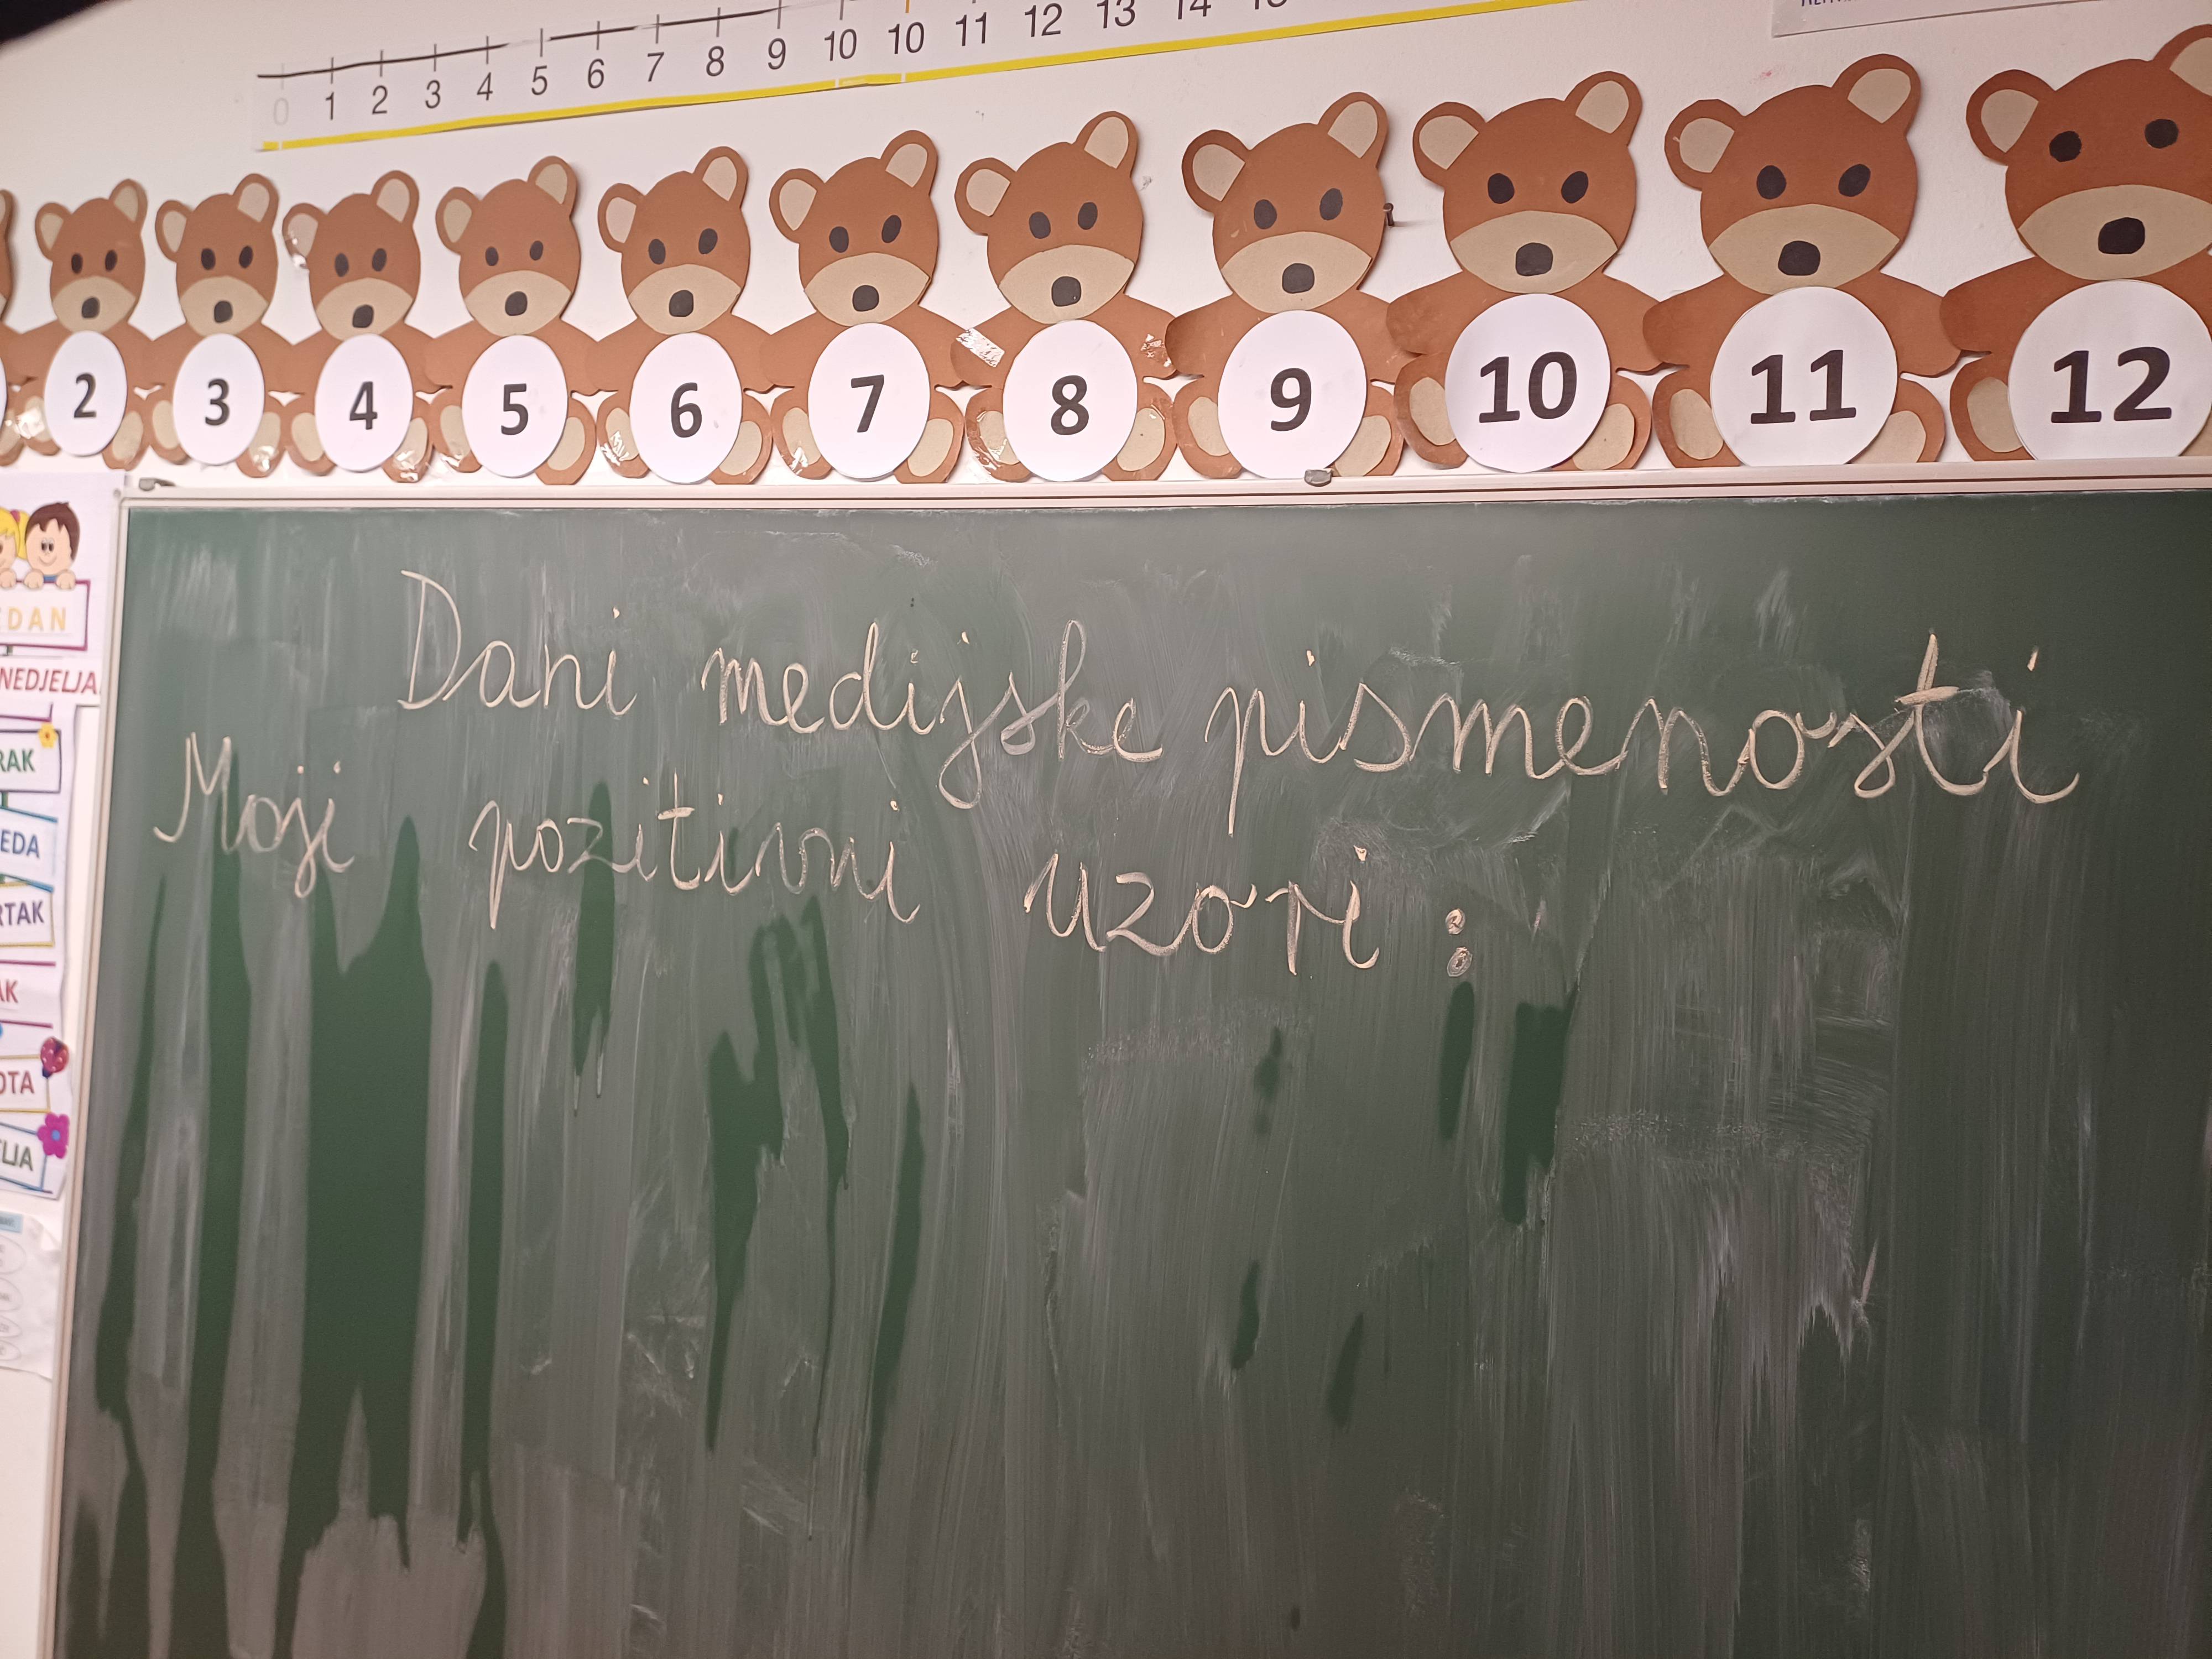 0 1 2 3 4 5 6 7 8 9 10 10 11 12 13 14
2 3 4 5 6 7 8 9 10 11 12
Dani medijske pismenosti
Moji pozitivni uzori:
DAN
NEDJELJA
RAK
EDA
RTAK
AK
OTA
LJA